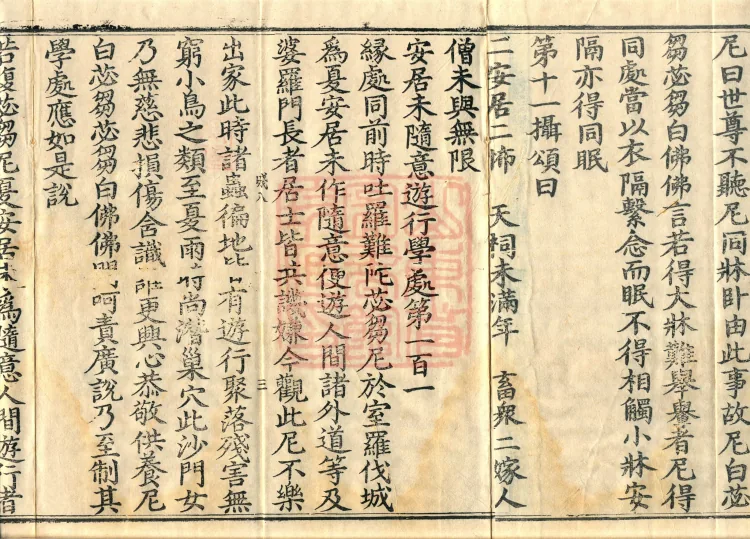 尼曰世尊不聽尼同牀臥由此事故尼白苾
芻苾芻白佛佛言若得大牀難舉轝者尼得
同處當以衣隔繫念而眠不得相觸小牀安
隔亦得同眠
第十一攝頌曰
二安居二㤥 天祠未滿年 畜衆二嫁人
僧未與無限
安居未隨意遊行學處第一百一
緣處同前時吐羅難陀苾芻尼於室羅伐城
爲夏安居未作隨意便遊人間諸外道等及
婆羅門長者居士皆共譏嫌今觀此尼不樂
出家此時諸蟲徧地皆有遊行聚落殘害無
窮小鳥之類至夏雨時尚潛巢穴此沙門女
乃無慈悲損傷含識誰更興心恭敬供養尼
白苾芻苾芻白佛佛問呵責廣說乃至制其
學處應如是說
若復苾芻尼夏安居未爲隨意人間遊行者
三